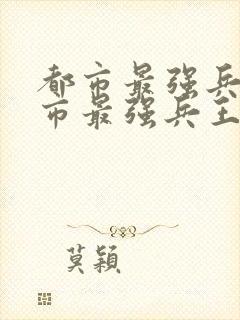 都市最强兵
市最强兵王
莫颖